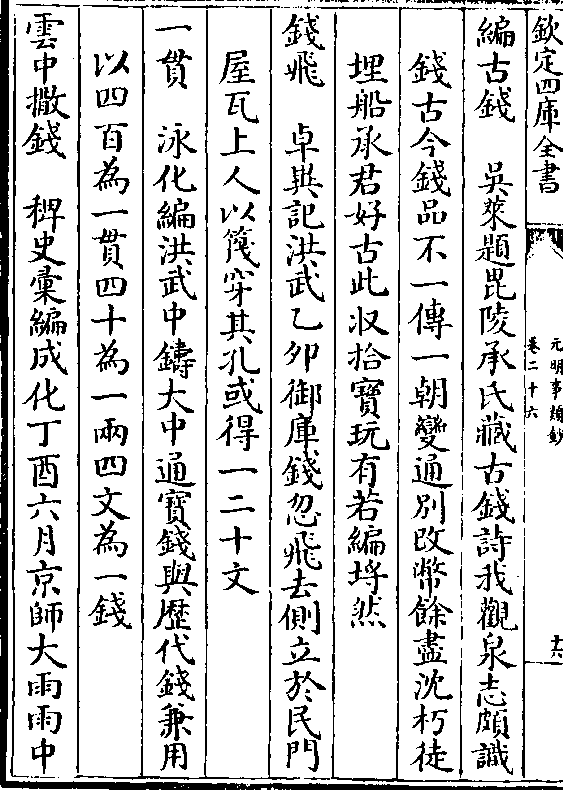 欽定四庫全書
元明事類鈔
卷二十六
十六
編古錢　吳萊題毘陵承氏藏古錢詩我觀泉志頗識
錢古今錢品不一傳一朝變通別改幣餘盡沈朽徒
埋船承君好古此収拾寶玩有若編埓然
錢飛　卓異記洪武乙卯御庫錢忽飛去側立於民門
屋瓦上人以篾穿其孔或得一二十文
一貫　泳化編洪武中鑄大中通寶錢與歴代錢兼用
以四百為一貫四十為一兩四文為一錢
雲中撒錢　稗史彚編成化丁酉六月京師大雨雨中